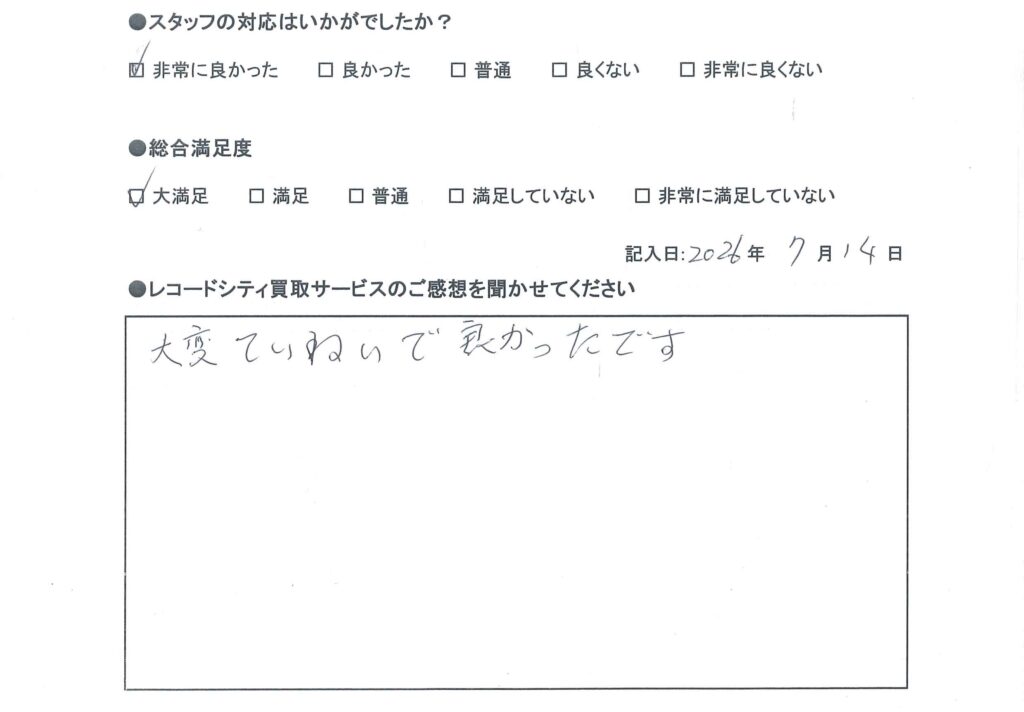 ●スタッフの対応はいかがでしたか？
☑ 非常に良かった □ 良かった □ 普通 □ 良くない □ 非常に良くない
●総合満足度
☑ 大満足 □ 満足 □ 普通 □ 満足していない □ 非常に満足していない
記入日:2026年 7月14日
●レコードシティ買取サービスのご感想を聞かせてください
大変ていねいで良かったです